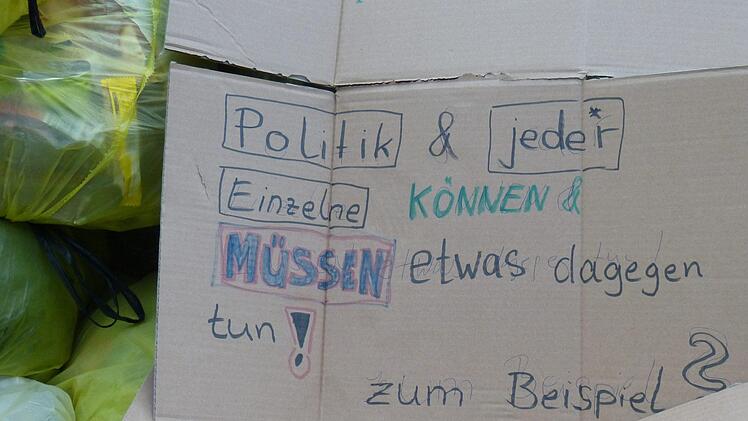 Politik & jede*r
Einzelne KÖNNEN &
MÜSSEN etwas dagegen
tun!
zum Beispiel